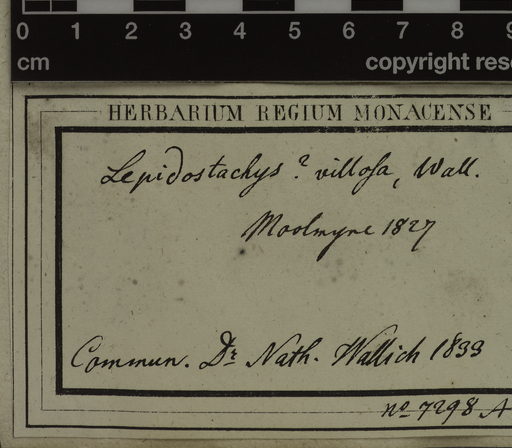 0 1 2 3 4 5 6 7 8 9
cm copyright rese
HERBARIUM REGIUM MONACENSE
Lepidostachys? villosa, Wall.
Moolmyne 1827
Commun. Dr Nath. Wallich 1833
no 7298 A